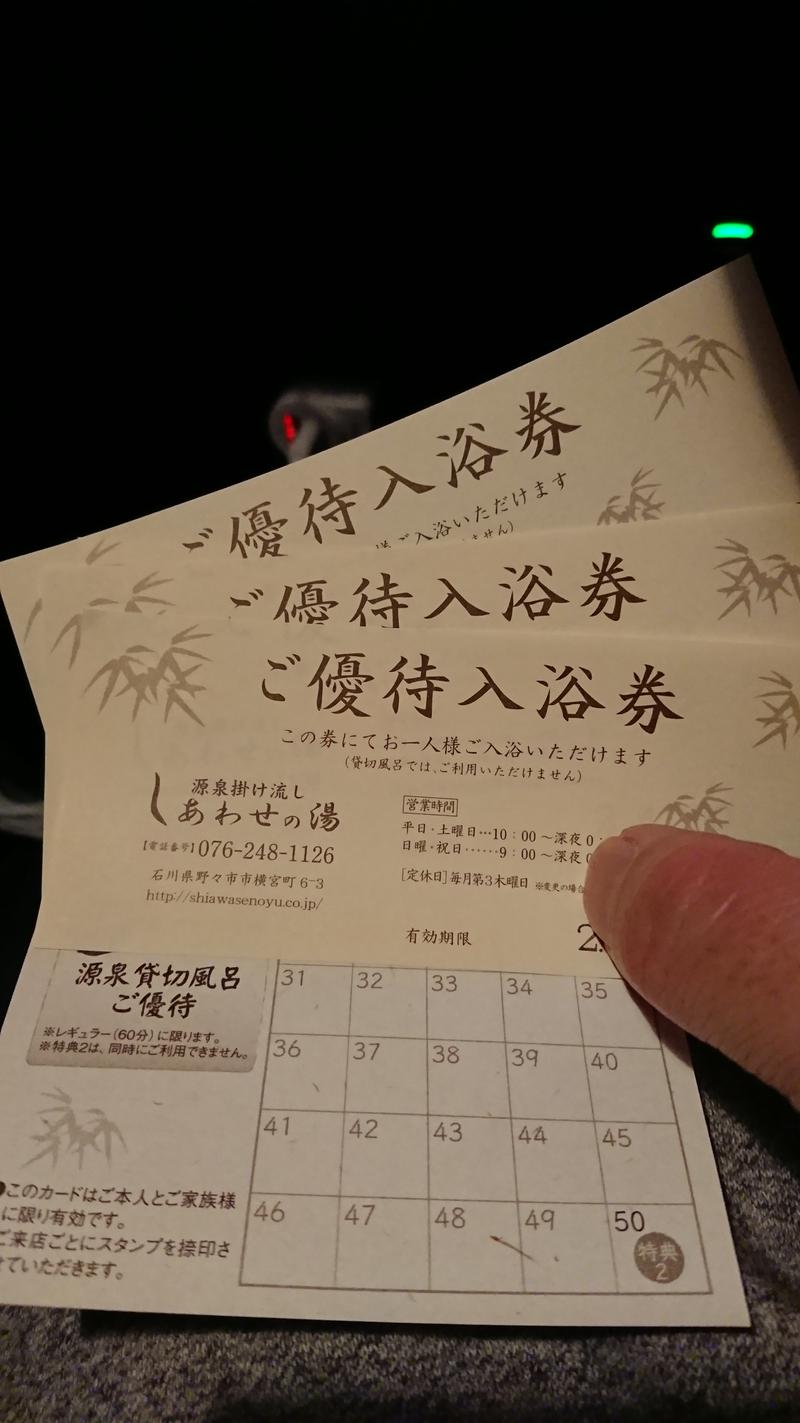 ご優待入浴券
ご入浴いただけます
ません）
ご優待入浴券
ご優待入浴券
この券にてお一人様ご入浴いただけます
（貸切風呂では、ご利用いただけません）
源泉掛け流し
しあわせの湯
【電話番号】076-248-1126
石川県野々市市横宮町6-3
http://shiawasenoyu.co.jp/
営業時間
平日・土曜日…10：00～深夜0：
日曜・祝日……9：00～深夜0
［定休日］毎月第3木曜日 ※変更の場合
有効期限
2.
源泉貸切風呂
ご優待
※レギュラー（60分）に限ります。
※特典2は、同時にご利用できません。
31 32 33 34 35
36 37 38 39 40
41 42 43 44 45
46 47 48 49 50
特典
2
●このカードはご本人とご家族様
に限り有効です。
ご来店ごとにスタンプを捺印さ
せていただきます。